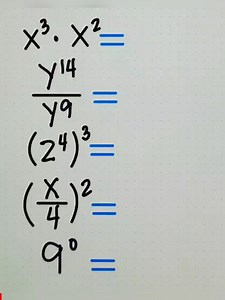 x³ · x² =
y¹⁴/y⁹ =
(2⁴)³ =
(x/4)² =
9⁰ =